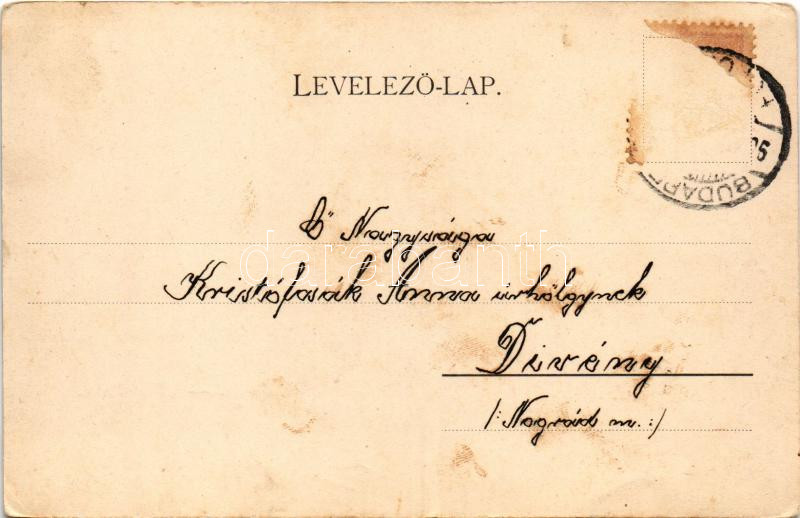 LEVELEZŐ-LAP.
BUDAPE
Ő Nagysága
Kristófcsák Anna úrhölgynek
Divény
/: Nográd m. :/
darabanth